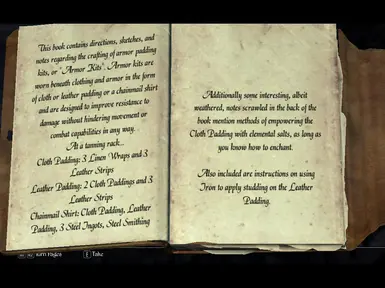 This book contains directions, sketches, and
notes regarding the crafting of armor padding
kits, or "Armor Kits". Armor kits are
worn beneath clothing and armor in the form
of cloth or leather padding or a chainmail shirt
and are designed to improve resistance to
damage without hindering movement or
combat capabilities in any way.
At a tanning rack...
Cloth Padding: 3 Linen Wraps and 3
Leather Strips
Leather Padding: 2 Cloth Paddings and 3
Leather Strips
Chainmail Shirt: Cloth Padding, Leather
Padding, 3 Steel Ingots, Steel Smithing
Additionally some interesting, albeit
weathered, notes scrawled in the back of the
book mention methods of empowering the
Cloth Padding with elemental salts, as long as
you know how to enchant.
Also included are instructions on using
Iron to apply studding on the Leather
Padding.
Turn Pages
E Take